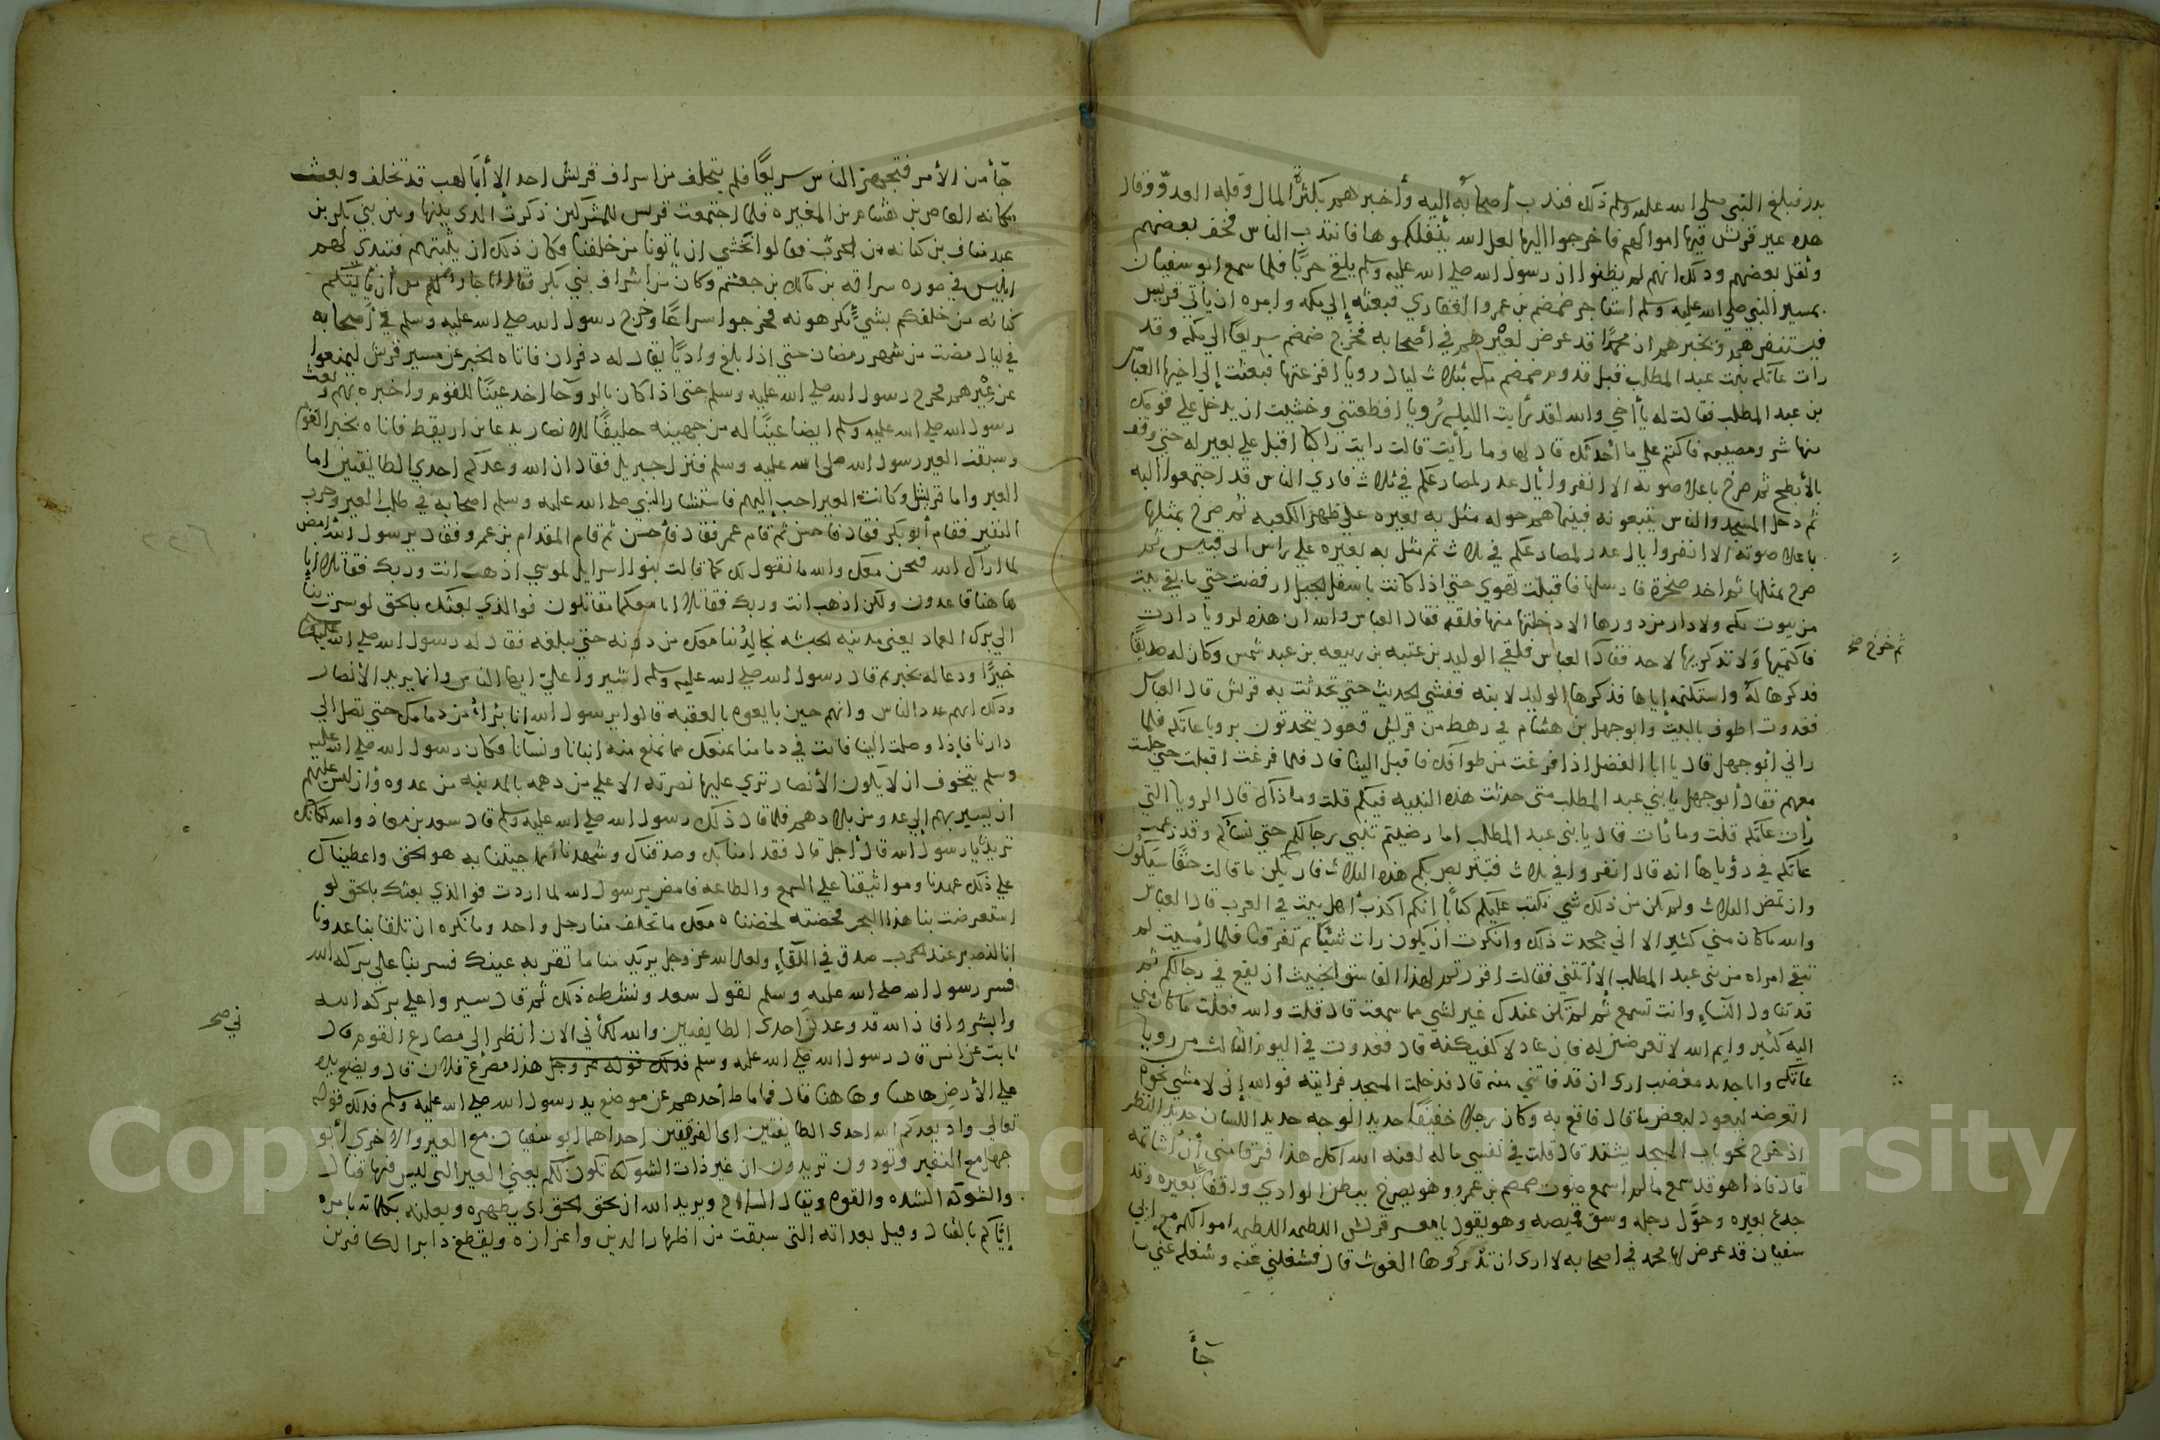 بدر فبلغ النبي صلى الله عليه وسلم ذلك فندب أصحابه إليه وأخبرهم بكثرة المال وقلة العدو وقال
هده عير قريش فيها اموالهم فاخرجوا اليها لعل الله ينفلكموها فانتدب الناس فخف بعضهم
وثقل بعضهم وذلك انهم لم يظنوا ان رسول الله صلى الله عليه وسلم يلقى حربًا فلما سمع ابو سفيان
بمسير النبي صلى الله عليه وسلم استاجر ضمضم بن عمرو الغفاري فبعثه إلى مكه وامره ان ياتي قريش
فيستنفرهم ويخبرهم ان محمدًا قد عرض لعيرهم في أصحابه فخرج ضمضم سريعًا الى مكه وقد
رات عاتكه بنت عبد المطلب قبل قدوم ضمضم مكه بثلاث ليال رويا افزعتها فبعثت إلى اخيها العباس
بن عبد المطلب فقالت له يأ أخي والله لقد رأيت الليله رُويا افظعتني وخشيت ان يدخل على قومك
منها شر ومصيبه فاكتم علي ما أحدثك قال لها وما رأيت قالت رايت راكبا اقبل على بعير له حتى وقف
بالأبطح ثم صرخ باعلا صوته الا انفروا يأل غدر لمصارعكم في ثلاث فارى الناس قد اجتمعوا اليه
ثم دخل المسجد والناس يتبعونه فبينما هم حوله مثل به بعيره على ظهر الكعبه ثم صرخ بمثلها
باعلا صوته الا انفروا يال غدر لمصارعكم في ثلاث ثم مثل به بعيره على راس ابى قبيس ثم
صرخ بمثلها ثم اخد صخرة فارسلها فاقبلت تهوي حتي اذا كانت باسفل الجبل ارفضت حتي ما بقي بيت
من بيوت مكه ولا دار من دورها الا دخلتها منها فلقه فقال العباس والله ان هذه لرويا رايت
فاكتميها ولا تذكريها لاحد فقال العباس فلقي الوليد بن عتبه بن ربيعه بن عبد شمس وكان له صديقًا
ثم خرج صح
فدكرها له واستكتمه إياها فذكرها الوليد لابنه ففشي الحديث حتي تحدثت به قريش قال العباس
فغدوت اطوف بالبيت وابو جهل بن هشام في رهط من قريش قعود يتحدثون برويا عاتكه فلما
راني أبو جهل قال يا ابا الفضل اذا فرغت من طوافك فاقبل الينا قال فلما فرغت اقبلت حتي جلست
معهم فقال أبو جهل يا بني عبد المطلب متى حدثت هذه النبيه فيكم قلت وما ذاك قال الرويا التي
رأت عاتكه قلت وما رأت قال يا بني عبد المطلب اما رضيتم تنبي رجالكم حتي نساكم وقد زعمت
عاتكه في رؤياها انه قال انفروا في ثلاث فنتربص بكم هذه الثلاث فان يكن ما قالت حقًا سيكون
وان تمض الثلاث ولم يكن من ذلك شي نكتب عليكم كتابًا أنكم اكذب أهل بيت في العرب قال العباس
والله ما كان مني كبير الا اني جحدت ذلك وانكرت ان يكون رات شيًا ثم تفرقنا فلما أمسيت لم
تبقى امراه من بني عبد المطلب الا أتتني فقالت اقررتم لهذا الفاسق الخبيث ان يقع في رجالكم ثم
قد تناول النساء وانت تسمع ثم لم يكن عندك غير لشي مما سمعت قال قلت والله فعلت ما كان مني
اليه كبير وايم الله لاتعرضن له فان عاد لاكفيكنه قال فغدوت في اليوم الثالث من رويا
عاتكه وانا حديد مغضب ارى ان قد فاتني منه قال فدخلت المسجد فرايته فوالله إني لامشي نحوه
اتعرضه ليعود لبعض ما قال فاقع به وكان رجلا خفيفًا حديد الوجه حديد اللسان حديد النظر
اذ خرج نحو باب المسجد يشتد قال قلت في نفسي ما له لعنه الله اكل هذا فرقا مني أن اشاتمه
قال فاذا هو قد سمع مالم اسمع صوت ضمضم بن عمرو وهو يصرخ ببطن الوادي واقفًا بعيره وقد
جدع بعيره وحول رحله وشق قميصه وهو يقول يا معشر قريش اللطيمه اللطيمه اموالكم مع ابي
سفيان قد عرض لها محمد في اصحابه لا ارى ان تدركوها الغوث قال فشغلني عنه وشغله عني ما
جأ
جأ من الأمر فتجهز الناس سريعًا فلم يتخلف من اشراف قريش احد إلا أبا لهب قد تخلف وبعث
مكانه العاص بن هشام بن المغيره فلما اجتمعت قريش للمشركين ذكرت الذي بينها وبين بني بكر بن
عبد مناف بن كنانه من الحرب فقالوا نخشي ان ياتونا من خلفنا وكان ذلك ان يثبتهم فتبدي لهم
ابليس في صوره سراقه بن مالك بن جعشم وكان من أشراف بني بكر فقال انا جار لكم من أن تأتيكم
كنانه من خلفكم بشيءٍ تكرهونه فخرجوا سراعًا وخرج رسول الله صلى الله عليه وسلم في أصحابه
في ليال مضت من شهر رمضان حتى اذا بلغ واديًا يقال له دفران فاتاه الخبر عن مسير قريش ليمنعوا
عن عيرهم فخرج رسول الله صلى الله عليه وسلم حتى اذا كان بالروحا اخد عينًا للقوم واخبره بهم وبعث
رسول الله صلى الله عليه وسلم ايضا عينًا له من جهينه حليفًا للانصار يدعا بن اريقط فاتاه بخبر القوم
وسبقت العير رسول الله صلى الله عليه وسلم فنزل جبريل فقال ان الله وعدكم احدي الطايفتين اما
العير واما قريش وكانت العير احب إليهم فاستشار النبي صلى الله عليه وسلم اصحابه في طلب العير وحرب
النفير فقام أبو بكر فقال فاحسن ثم قام عمر فقال فأحسن ثم قام المقدام بن عمرو فقال يرسول الله امض
لما اراك الله فنحن معك والله ما نقول لك كما قالت بنوا اسرايل لموسي اذهب انت وربك فقاتلا انا
هاهنا قاعدون ولكن اذهب انت وربك فقاتلا انا معكما مقاتلون فوالذي بعثك بالحق لو سرت بنا
الي برك الغماد يعني مدينه الحبشه لجالدنا معك من دونه حتى تبلغه فقال له رسول الله صلى الله عليه وسلم
خيرًا ودعا له بخير ثم قال رسول الله صلى الله عليه وسلم اشيروا عليّ ايها الناس وانما يريد الأنصار
وذلك انهم عدد الناس وانهم حين بايعوه بالعقبه قالوا يرسول الله انا برأء من دمامك حتى تصل الي
دارنا فإذا وصلت الينا فانت في دمامنا نمنعك مما نمنع منه ابنانا ونسآنا فكان رسول الله صلى الله عليه
وسلم يتخوف ان لا يكون الأنصار تري عليها نصرته الا على من دهمه بالمدينه من عدوه وأن ليس عليهم
ان يسير بهم إلى عدو من بلادهم فلما قال ذلك رسول الله صلى الله عليه وسلم قال سعد بن معاذ والله لكانك
تريدنا يا رسول الله قال أجل قال فقد امنا بك وصدقناك وشهدنا أنما جيتنا به هو الحق واعطيناك
على ذلك عهدنا ومواثيقنا على السمع والطاعه فامض يرسول الله لما اردت فوالذي بعثك بالحق لو
استعرضت بنا هذا البحر فخضته لخضناه معك ما تخلف منا رجل واحد وما نكره ان تلقا بنا عدونا
انا لنصبر عند الحرب صدق في اللقاء ولعل الله عز وجل يريك منا ما تقر به عينك فسر بنا على بركه الله
فسر رسول الله صلى الله عليه وسلم لقول سعد ونشطه ذلك ثم قال سيروا على بركه الله
وابشروا فان الله قد وعدني احدى الطايفتين والله لكأني الان أنظر إلى مصارع القوم قال
ني صح
ثابت عن انس قال رسول الله صلى الله عليه وسلم هذا مصرع فلان قال ويضع يده
على الأرض هاهنا وهاهنا قال فما ماط أحدهم عن موضع يد رسول الله صلى الله عليه وسلم فدلك قوله
تعالى واذ يعدكم الله احدى الطايفتين اى الفرقتين احداهما ابو سفيان مع العير والاخرى أبو
جهل مع النفير وتودون تريدون ان غير ذات الشوكه تكون لكم يعني العير التى ليس فيها قتال
والشوكه الشده والقوه ويقال السلاح ويريد الله ان يحق الحق اى يظهره ويعليه بكلماته بامره
إياكم بالقتال وقيل بعداته التى سبقت من اظهار الدين واعزازه ويقطع دابر الكافرين